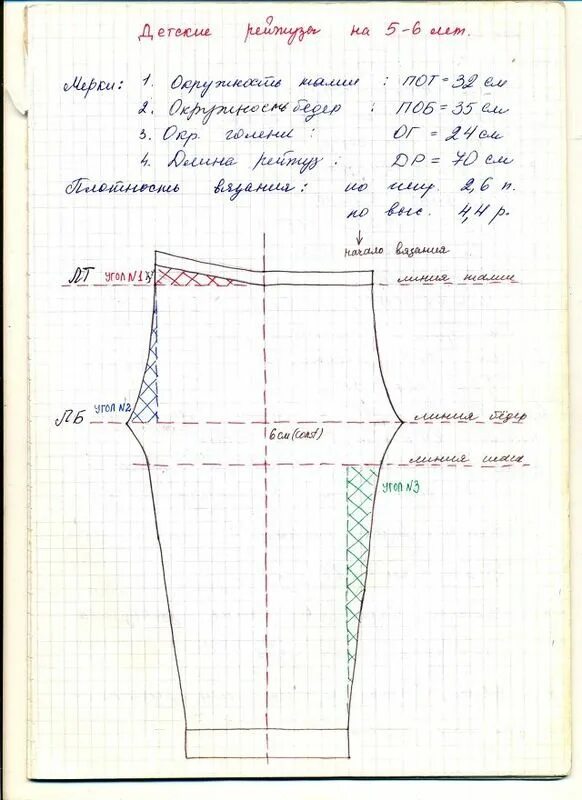 Детские рейтузы на 5-6 лет.
Мерки: 1. Окружность талии : ПОТ = 32 см
2. Окружность бедер : ПОБ = 35 см
3. Окр. голени : ОГ = 24 см
4. Длина рейтуз : DР = 70 см
Плотность вязания : по шир. 2,6 п.
по выс. 4,4 р.
начало вязания
ЛТ угол N1 3 линия талии
ЛБ угол N2 линия бёдер
6 см (const)
линия шага
угол N3